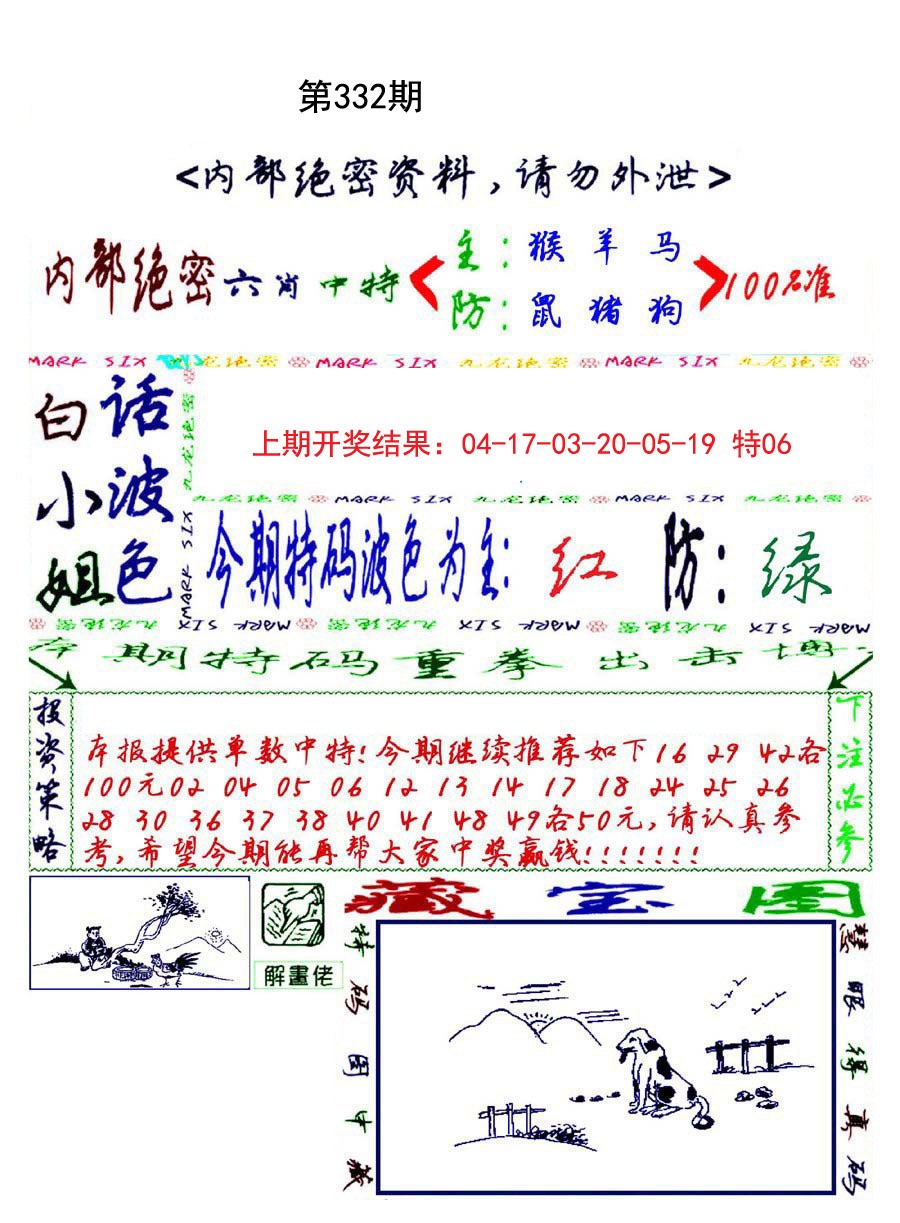 第332期
<内部绝密资料,请勿外泄>
内部绝密六肖中特
主:猴 羊 马
防:鼠 猪 狗
100%准
MARK SIX 九龙绝密 MARK SIX 九龙绝密 MARK SIX 九龙绝密
白话
小波
姐色
九龙绝密
MARK SIX
上期开奖结果：04-17-03-20-05-19 特06
九龙绝密 MARK SIX 九龙绝密 MARK SIX 九龙绝密
今期特码波色为主:红 防:绿
九龙绝密 MARK SIX 九龙绝密 MARK SIX 九龙绝密 MARK SIX
本期特码重拳出击博
投资策略
本报提供单数中特!今期继续推荐如下16 29 42各
100元02 04 05 06 12 13 14 17 18 24 25 26
28 30 36 37 38 40 41 48 49各50元,请认真参
考,希望今期能再帮大家中奖赢钱!!!!!!!
下注必参
解畫佬
藏宝图
特码图中藏
慧眼得真码